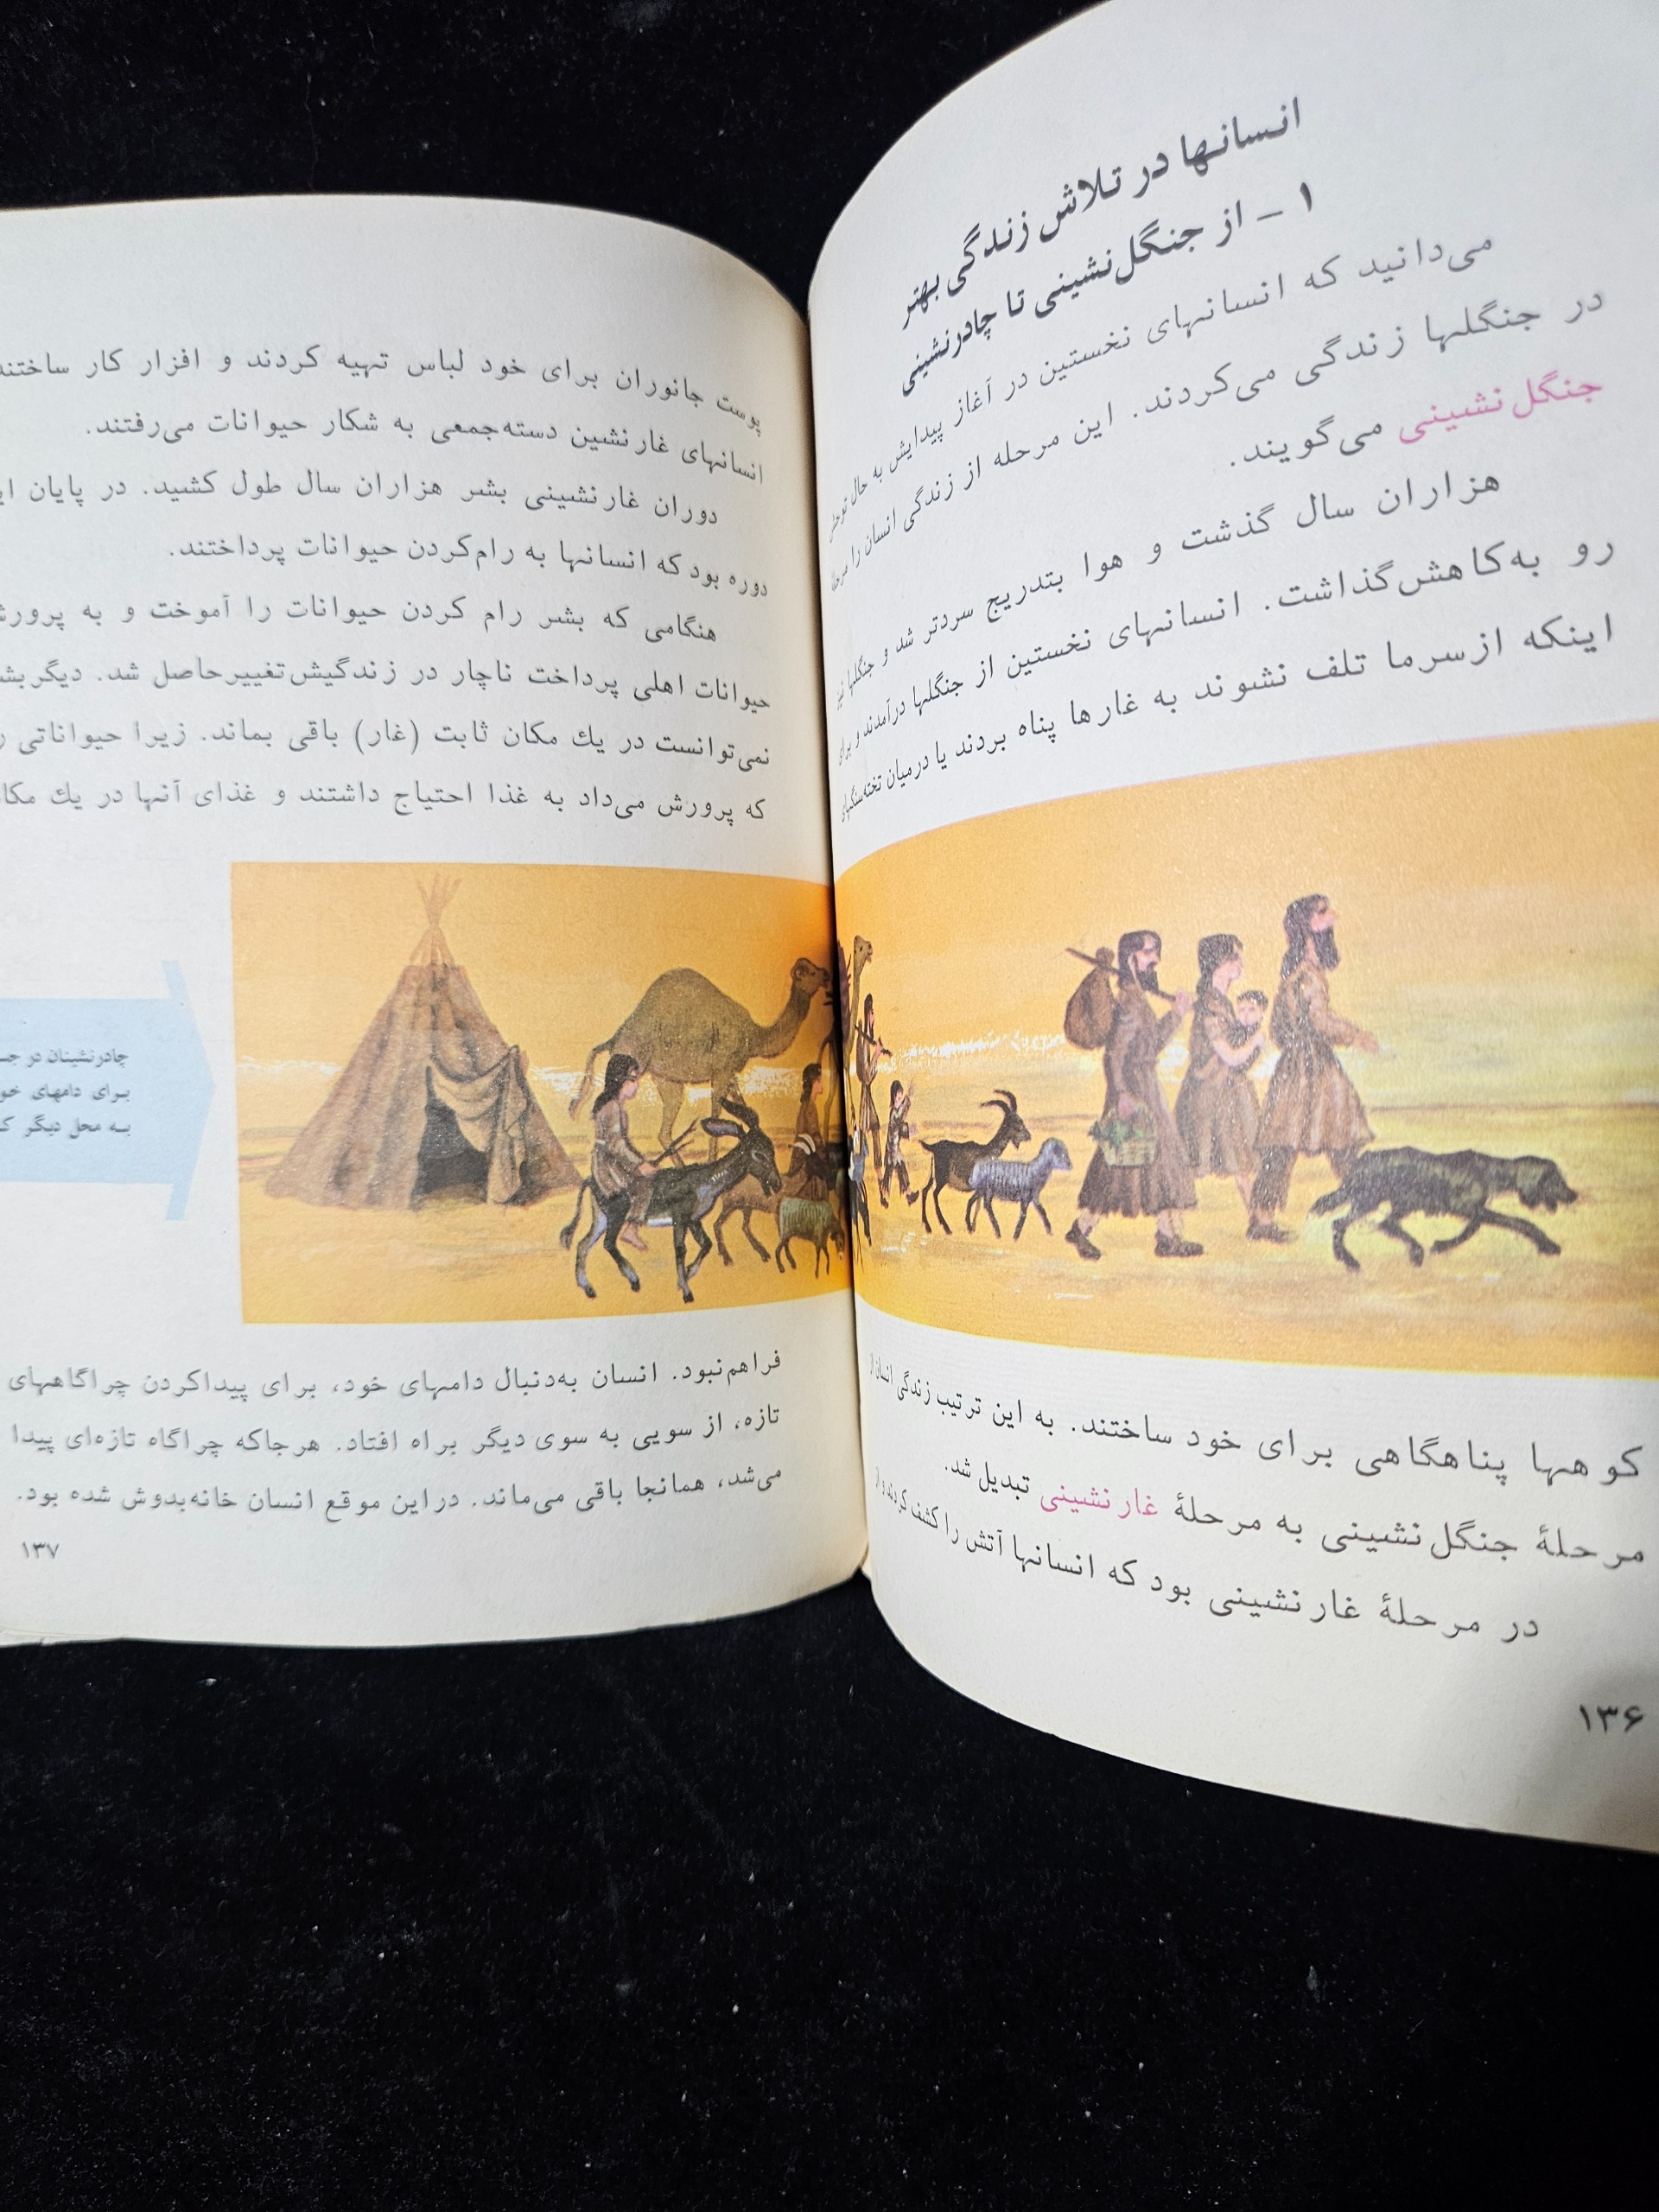 انسانها در تلاش زندگی بهتر
۱ – از جنگل‌نشینی تا چادرنشینی
می‌دانید که انسانهای نخستین در آغاز پیدایش به حال توحش
در جنگلها زندگی می‌کردند. این مرحله از زندگی انسان را مرحلهٔ
جنگل‌نشینی می‌گویند.
هزاران سال گذشت و هوا بتدریج سردتر شد و جنگلها نیز
رو به‌کاهش‌گذاشت. انسانهای نخستین از جنگلها درآمدند و برای
اینکه ازسرما تلف نشوند به غارها پناه بردند یا درمیان تخته‌سنگهای
کوهها پناهگاهی برای خود ساختند. به این ترتیب زندگی انسان از
مرحلهٔ جنگل‌نشینی به مرحلهٔ غارنشینی تبدیل شد.
در مرحلهٔ غارنشینی بود که انسانها آتش را کشف کردند و از
۱۳۶
پوست جانوران برای خود لباس تهیه کردند و افزار کار ساختند
انسانهای غارنشین دسته‌جمعی به شکار حیوانات می‌رفتند.
دوران غارنشینی بشر هزاران سال طول کشید. در پایان
دوره بود که انسانها به رام‌کردن حیوانات پرداختند.
هنگامی که بشر رام کردن حیوانات را آموخت و به پرورش
حیوانات اهلی پرداخت ناچار در زندگیش‌تغییرحاصل شد. دیگربشر
نمی‌توانست در یك مکان ثابت (غار) باقی بماند. زیرا حیواناتی
که پرورش می‌داد به غذا احتیاج داشتند و غذای آنها در یك
چادرنشینان در
برای دامهای
به محل دیگر
فراهم‌نبود. انسان به‌دنبال دامهای خود، برای پیداکردن چراگاههای
تازه، از سویی به سوی دیگر براه افتاد. هرجاکه چراگاه تازه‌ای پیدا
می‌شد، همانجا باقی می‌ماند. دراین موقع انسان خانه‌بدوش شده بود.
۱۳۷